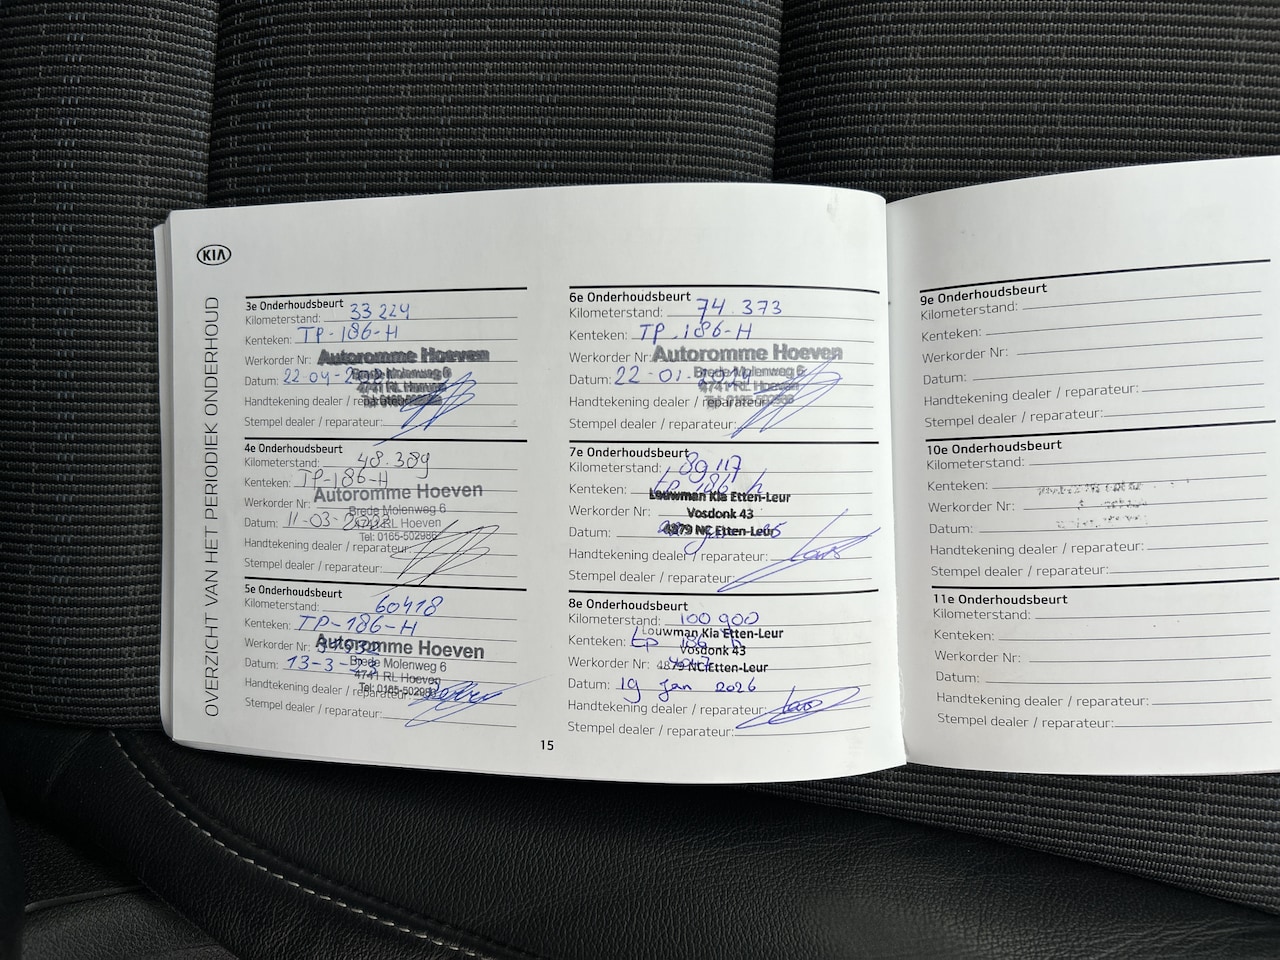 KIA
OVERZICHT VAN HET PERIODIEK ONDERHOUD
3e Onderhoudsbeurt
Kilometerstand: 33224
Kenteken: TP-186-H
Werkorder Nr:
Autoromme Hoeven
Brede Molenweg 6
Datum: 22-04-
4741 RL Hoeven
Tel: 0165-502988
Handtekening dealer / reparateur:
Stempel dealer / reparateur:
4e Onderhoudsbeurt
Kilometerstand: 48.389
Kenteken: TP-186-H
Autoromme Hoeven
Werkorder Nr:
Brede Molenweg 6
Datum: 11-03-
4741 RL Hoeven
Tel: 0165-502988
Handtekening dealer / reparateur:
Stempel dealer / reparateur:
5e Onderhoudsbeurt
Kilometerstand: 60418
Kenteken: TP-186-H
Werkorder Nr:
Autoromme Hoeven
Brede Molenweg 6
Datum: 13-3-
4741 RL Hoeven
Tel: 0165-502988
Handtekening dealer / reparateur:
Stempel dealer / reparateur:
6e Onderhoudsbeurt
Kilometerstand: 74.373
Kenteken: TP-186-H
Werkorder Nr:
Autoromme Hoeven
Brede Molenweg 6
Datum: 22-01-
4741 RL Hoeven
Tel: 0165-502988
Handtekening dealer / reparateur:
Stempel dealer / reparateur:
7e Onderhoudsbeurt
Kilometerstand: 89117
Kenteken: tp 186 h
Louwman Kia Etten-Leur
Werkorder Nr:
Vosdonk 43
Datum:
4879 NC Etten-Leur
Handtekening dealer / reparateur:
Stempel dealer / reparateur:
8e Onderhoudsbeurt
Kilometerstand: 100900
Louwman Kia Etten-Leur
Kenteken: tp 186 h
Vosdonk 43
Werkorder Nr:
4879 NC Etten-Leur
Datum: 19 jan 2026
Handtekening dealer / reparateur:
Stempel dealer / reparateur:
15
9e Onderhoudsbeurt
Kilometerstand:
Kenteken:
Werkorder Nr:
Datum:
Handtekening dealer / reparateur:
Stempel dealer / reparateur:
10e Onderhoudsbeurt
Kilometerstand:
Kenteken:
Werkorder Nr:
Datum:
Handtekening dealer / reparateur:
Stempel dealer / reparateur:
11e Onderhoudsbeurt
Kilometerstand:
Kenteken:
Werkorder Nr:
Datum:
Handtekening dealer / reparateur:
Stempel dealer / reparateur: